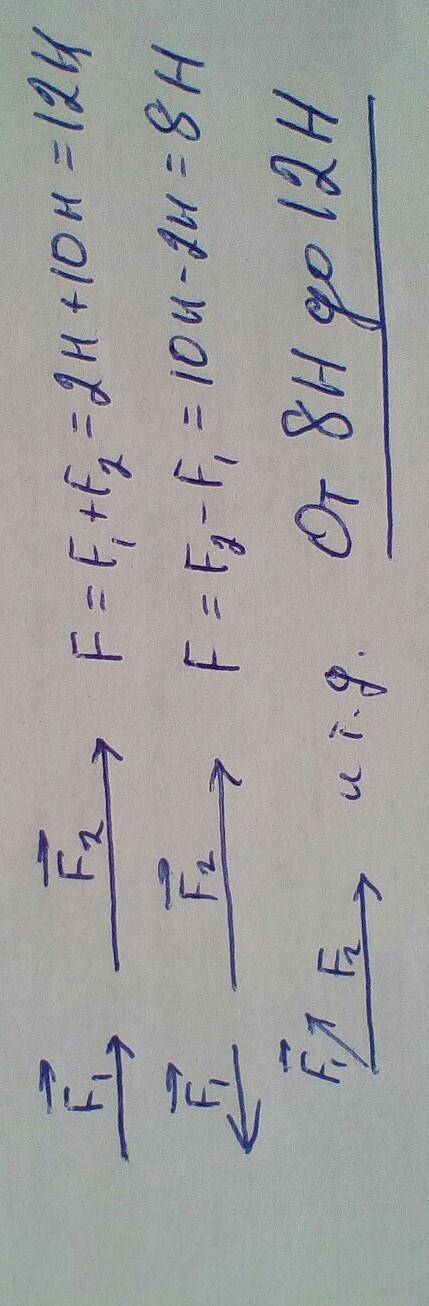 F⃗₁ F⃗₂ F = F₁ + F₂ = 2Н + 10Н = 12Н
F⃗₁ F⃗₂ F = F₂ - F₁ = 10Н - 2Н = 8Н
F⃗₁ F₂ и т.д. От 8Н до 12Н